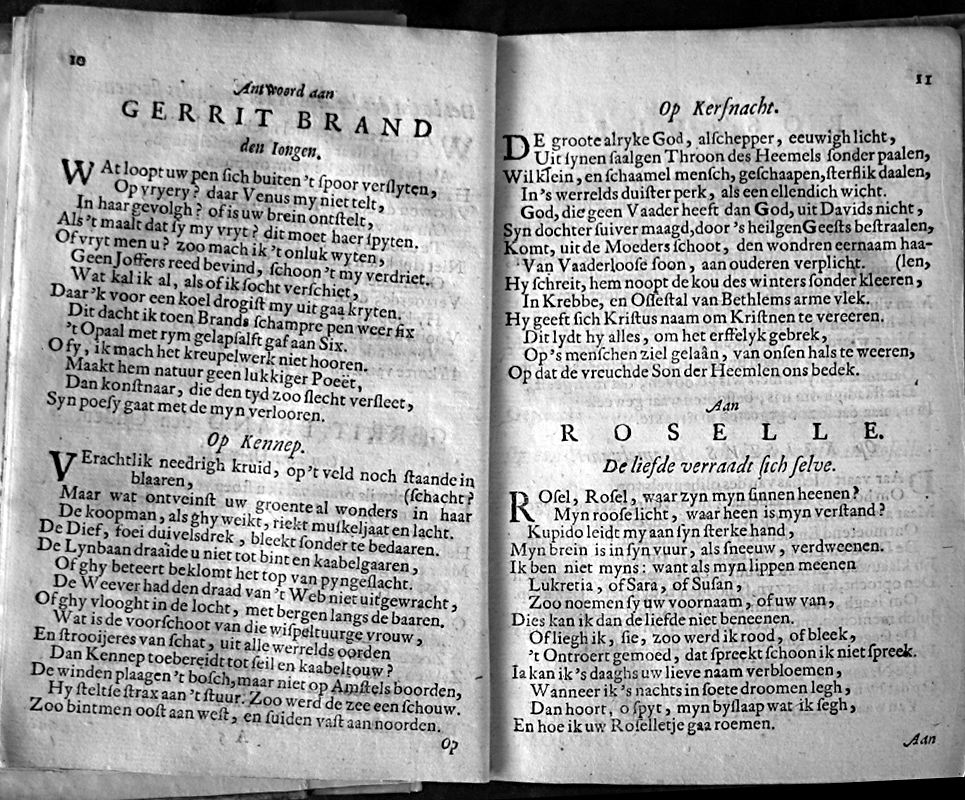 10
Antwoord aan
GERRIT BRAND
den Iongen.
WAt loopt uw pen ſich buiten 't ſpoor verſlyten,
Op vryery? daar Venus my niet telt,
In haar gevolgh? of is uw brein ontſtelt,
Als 't maalt dat ſy my vryt? dit moet haer ſpyten.
Of vryt men u? zoo mach ik 't onluk wyten,
Geen Joffers reed bevind, ſchoon 't my verdriet.
Wat kal ik al, als of ik ſocht verſchiet,
Daar 'k voor een koel drogiſt my uit gaa kryten.
Dit dacht ik toen Brands ſchampre pen weer fix
't Opaal met rym gelapſalft gaf aan Six.
O fy, ik mach het kreupelwerk niet hooren.
Maakt hem natuur geen lukkiger Poeët,
Dan konſtnaar, die den tyd zoo ſlecht verſleet,
Syn poeſy gaat met de myn verlooren.
Op Kennep.
VErachtlik needrigh kruid, op 't veld noch ſtaande in
blaaren, (ſchacht?
Maar wat ontveinſt uw groente al wonders in haar
De koopman, als ghy weikt, riekt muſkeljaat en lacht.
De Dief, foei duivelsdrek, bleekt ſonder te bedaaren.
De Lynbaan draaide u niet tot bint en kaabelgaaren,
Of ghy beteert beklomt het top van pyngeſlacht.
De Weever had den draad van 't Web niet uitgewracht,
Of ghy vlooght in de locht, met bergen langs de baaren.
Wat is de voorſchoot van die wiſpeltuurge vrouw,
En ſtrooijeres van ſchat, uit alle werrelds oorden
Dan Kennep toebereidt tot ſeil en kaabeltouw?
De winden plaagen 't boſch, maar niet op Amſtels boorden,
Hy ſteltſe ſtrax aan 't ſtuur. Zoo werd de zee een ſchouw.
Zoo bintmen ooſt aan weſt, en ſuiden vaſt aan noorden.
Op
11
Op Kerſnacht.
DE groote alryke God, alſchepper, eeuwigh licht,
Uit ſynen ſaalgen Throon des Heemels ſonder paalen,
Wil kſein, en ſchaamel menſch, geſchaapen, ſterflik daalen,
In 's werrelds duiſter perk, als een ellendich wicht.
God, die geen Vaader heeft dan God, uit Davids nicht,
Syn dochter ſuiver maagd, door 's heilgen Geeſts beſtraalen,
Komt, uit de Moeders ſchoot, den wondren eernaam haa-
Van Vaaderlooſe ſoon, aan ouderen verplicht. (len,
Hy ſchreit, hem noopt de kou des winters ſonder kleeren,
In Krebbe, en Oſſeſtal van Bethlems arme vlek.
Hy geeft ſich Kriſtus naam om Kriſtnen te vereeren.
Dit lydt hy alles, om het erffelyk gebrek,
Op 's menſchen ziel gelaân, van onſen hals te weeren,
Op dat de vreuchde Son der Heemlen ons bedek.
Aan
ROSELLE.
De liefde verraadt ſich ſelve.
ROſel, Roſel, waar zyn myn ſinnen heenen?
Myn rooſe licht, waar heen is myn verſtand?
Kupido leidt my aan ſyn ſterke hand,
Myn brein is in ſyn vuur, als ſneeuw, verdweenen.
Ik ben niet myns: want als myn lippen meenen
Lukretia, of Sara, of Suſan,
Zoo noemen ſy uw voornaam, of uw van,
Dies kan ik dan de liefde niet beneenen.
Of liegh ik, ſie, zoo werd ik rood, of bleek,
't Ontroert gemoed, dat ſpreekt ſchoon ik niet ſpreek.
Ia kan ik 's daaghs uw lieve naam verbloemen,
Wanneer ik 's nachts in ſoete droomen legh,
Dan hoort, o ſpyt, myn byſlaap wat ik ſegh,
En hoe ik uw Roſelletje gaa roemen.
Aan